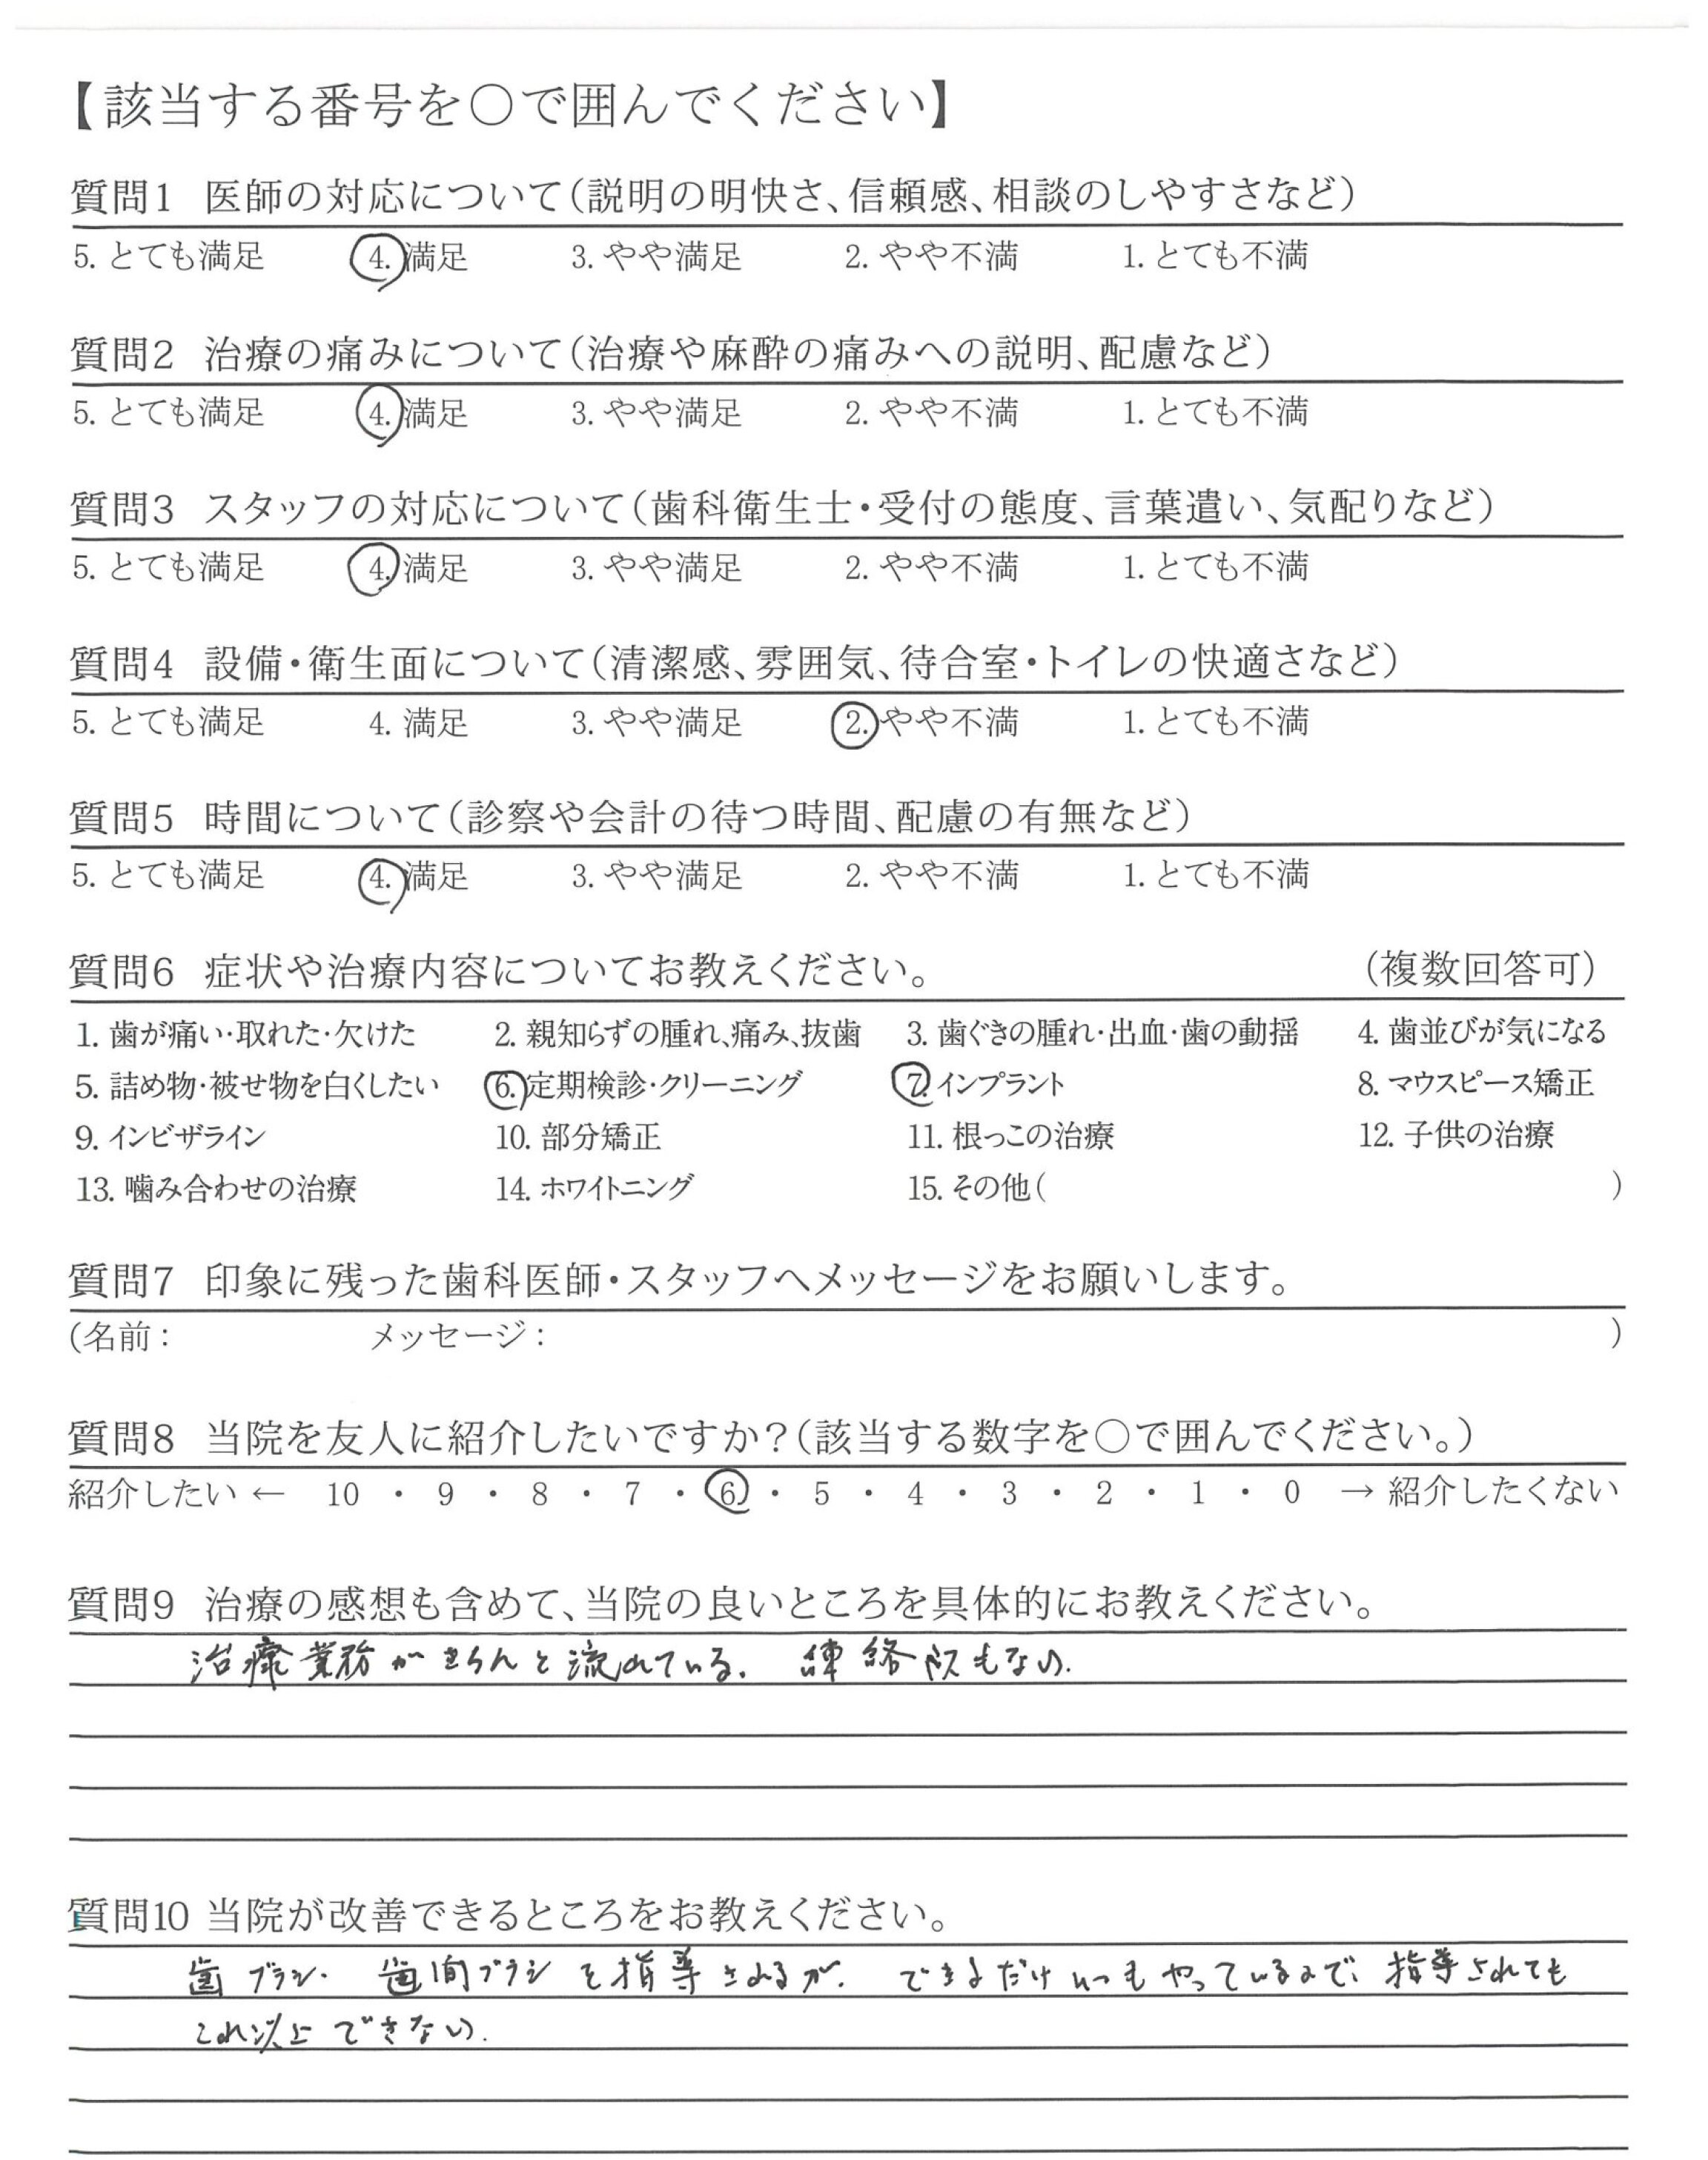 【該当する番号を〇で囲んでください】
質問1 医師の対応について(説明の明快さ、信頼感、相談のしやすさなど)
5. とても満足 4. 満足 3. やや満足 2. やや不満 1. とても不満
質問2 治療の痛みについて(治療や麻酔の痛みへの説明、配慮など)
5. とても満足 4. 満足 3. やや満足 2. やや不満 1. とても不満
質問3 スタッフの対応について(歯科衛生士・受付の態度、言葉遣い、気配りなど)
5. とても満足 4. 満足 3. やや満足 2. やや不満 1. とても不満
質問4 設備・衛生面について(清潔感、雰囲気、待合室・トイレの快適さなど)
5. とても満足 4. 満足 3. やや満足 2. やや不満 1. とても不満
質問5 時間について(診察や会計の待つ時間、配慮の有無など)
5. とても満足 4. 満足 3. やや満足 2. やや不満 1. とても不満
質問6 症状や治療内容についてお教えください。 (複数回答可)
1. 歯が痛い・取れた・欠けた 2. 親知らずの腫れ、痛み、抜歯 3. 歯ぐきの腫れ・出血・歯の動揺 4. 歯並びが気になる
5. 詰め物・被せ物を白くしたい 6. 定期検診・クリーニング 7. インプラント 8. マウスピース矯正
9. インビザライン 10. 部分矯正 11. 根っこの治療 12. 子供の治療
13. 噛み合わせの治療 14. ホワイトニング 15. その他( )
質問7 印象に残った歯科医師・スタッフへメッセージをお願いします。
(名前: メッセージ: )
質問8 当院を友人に紹介したいですか?(該当する数字を〇で囲んでください。)
紹介したい ← 10 ・ 9 ・ 8 ・ 7 ・ 6 ・ 5 ・ 4 ・ 3 ・ 2 ・ 1 ・ 0 → 紹介したくない
質問9 治療の感想も含めて、当院の良いところを具体的にお教えください。
治療業務がきちんと流れている. 連絡ミスもない.
質問10 当院が改善できるところをお教えください。
歯ブラシ・歯間ブラシを指導されるが. できるだけいつもやっているので、指導されても
これ以上できない.